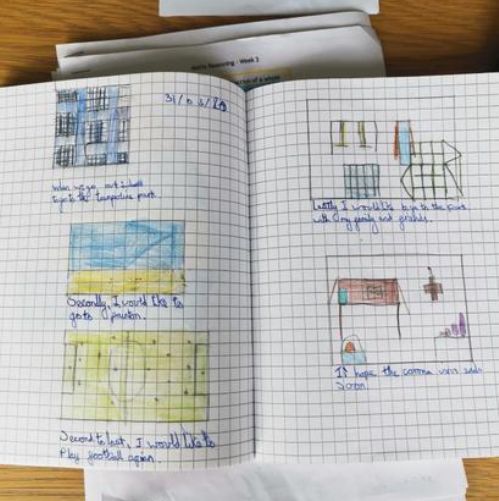 Maths Reasoning - Week 3
of a whole
When we go out I want
to go to the trampoline park
Secondly, I would like to
go to
Second to last, I would like to
Play football again.
Lastly I would like to go to the Park
with my family and friends.
I hope the corona virus ends
Soon.